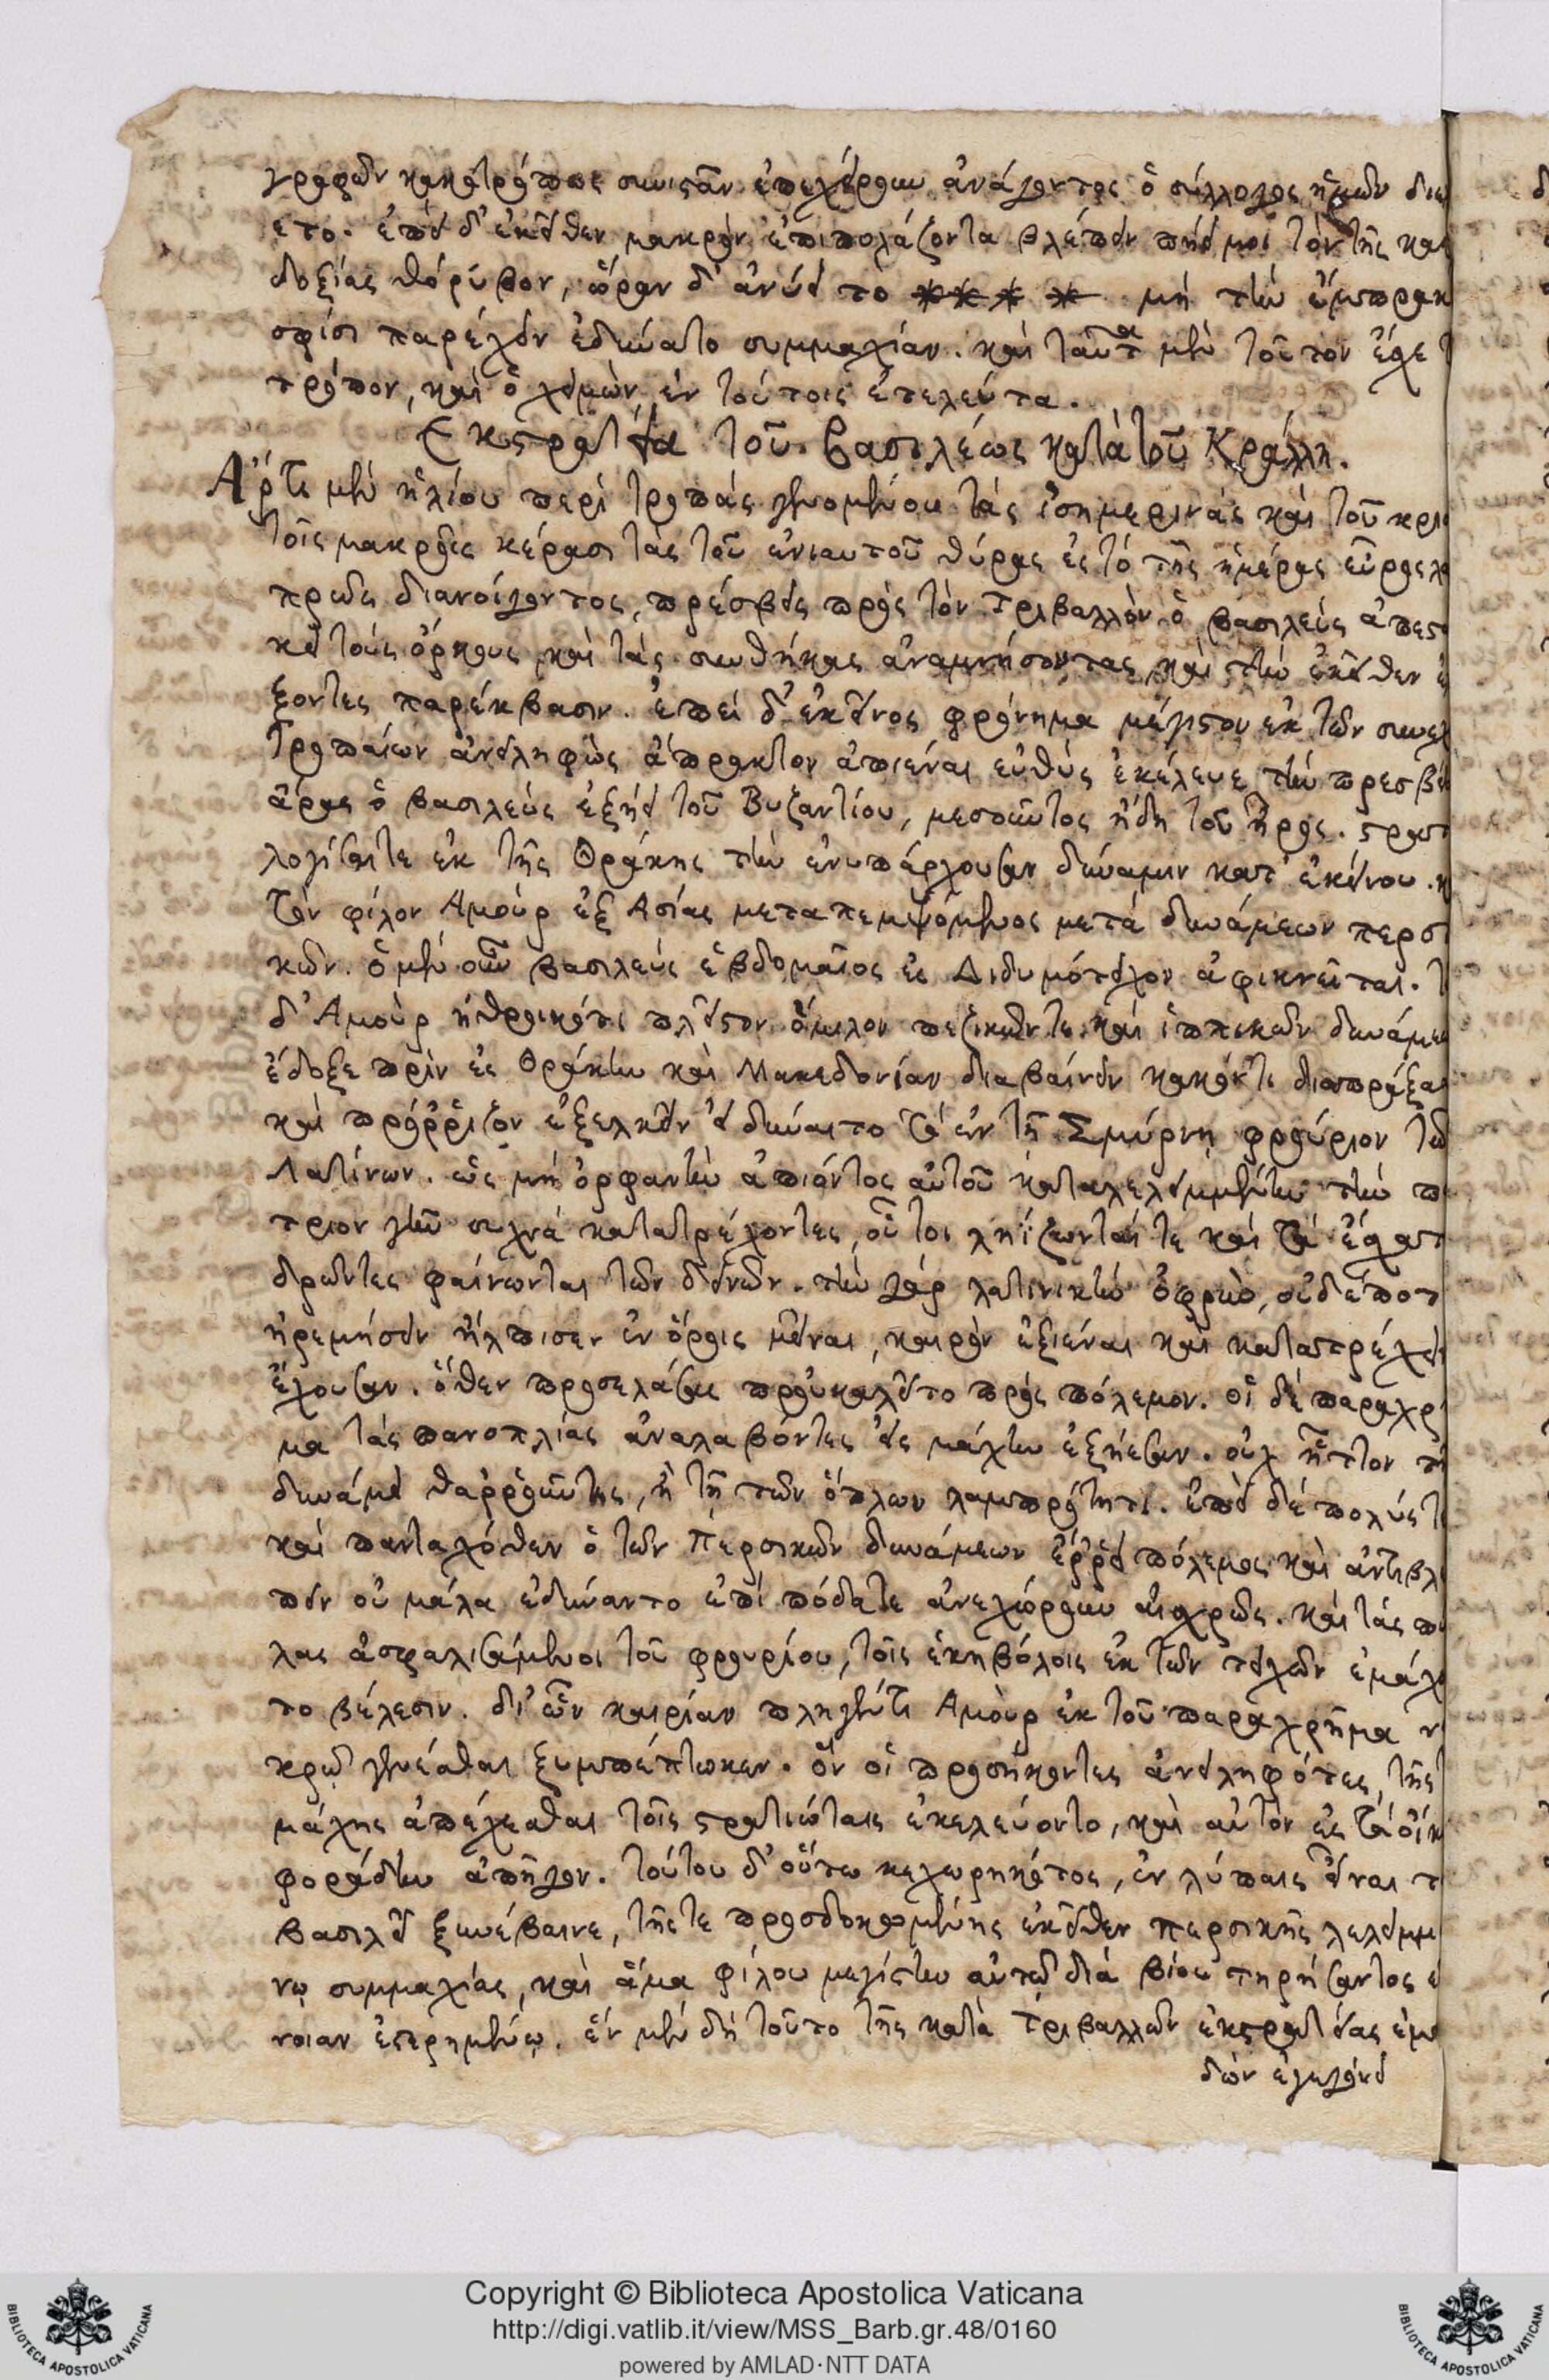 γραφῶν κακοτρόπως συνιστᾶν ἐπεχείρουν ἀνάγοντος ὁ σύλλογος ἡμῶν διε
ετο. ἐπεὶ δ' ἐκεῖθεν μακρὸν ἐπιπολάζοντα βλέπειν τὸν τῆς κα
δοξίας θόρυβον, ὥραν δ' ἀνύει τὸ **** μὴ τὴν ἔμπρακ
σφίσι παρέχειν ἐδύνατο συμμαχίαν. καὶ ταῦτα μὲν τοῦτον ἔσχε τ
τρόπον, καὶ ὁ χειμὼν ἐν τούτοις ἐτελεύτα.
Ἐκστρατεία τοῦ βασιλέως κατὰ τοῦ Κράλη.
Ἄρτι μὲν ἡλίου περὶ τροπὰς γενομένου τὰς ἰσημερινὰς καὶ τοῦ κριο
τοῖς μακροῖς κέρασι τὰς τοῦ ἐνιαυτοῦ θύρας ἐς τὸ τῆς ἡμέρας
διανοίγοντος, πρέσβεις πρὸς τὸν τριβαλλὸν ὁ βασιλεὺς ἀπεστ
κει τοὺς ὅρκους καὶ τὰς συνθήκας ἀναμνήσοντας, καὶ τὴν ἐκεῖθεν ἐ
ξοντες παρέκβασιν. ἐπεὶ δ' ἐκεῖνος φρόνημα μέγιστον ἐκ τῶν συνεχ
τροπαίων ἀνειληφὼς ἄπρακτον ἀπιέναι εὐθὺς ἐκέλευε τὴν πρεσβεί
ἄρας ὁ βασιλεὺς ἐξῄει τοῦ Βυζαντίου, μεσοῦντος ἤδη τοῦ ἦρος. στρατ
λογήσας τε ἐκ τῆς Θράκης τὴν ἐνυπάρχουσαν δύναμιν κατ' ἐκείνου. κ
τὸν φίλον Ἀμοὺρ ἐξ Ἀσίας μεταπεμψόμενος μετὰ δυνάμεων περσι
κῶν. ὁ μὲν οὖν βασιλεὺς ἑβδομαῖος ἐς Διδυμότειχον ἀφικνεῖται. τ
δ' Ἀμοὺρ ἠθροικότι πλεῖστον ὅμιλον πεζικῶν τε καὶ ἱππικῶν δυνάμε
ἔδοξε πρὶν ἐς Θράκην καὶ Μακεδονίαν διαβαίνειν κἀκεῖ τι διαπράξασ
καὶ πρόῤῥιζον ἐξελκεῖν εἰ δύναιτο τὸ ἐν τῇ Σμύρνῃ φρούριον τῶ
Λατίνων. ὡς μὴ ὀρφανὴν ἀπιόντος αὐτοῦ καταλελειμμένην τὴν πα
τριον γῆν συχνὰ κατατρέχοντες, οὗτοι ληΐζωνταί τε καὶ τὰ ἔσχατ
δρῶντες φαίνωνται τῶν δεινῶν. τὴν γὰρ λατινικὴν ὀφρὺν, οὐδέποτ
ἠρεμήσειν ἤλπισεν ἐν ὅροις μεῖναι, καιρὸν ἐξιέναι καὶ κατατρέχειν
ἔχουσαν. ὅθεν προσελάσας προὐκαλεῖτο πρὸς πόλεμον. οἱ δὲ παραχρῆ
μα τὰς πανοπλίας ἀναλαβόντες εἰς μάχην ἐξῄεσαν. οὐχ ἧττον τῇ
δυνάμει θαῤῥοῦντες, ἢ τῇ τῶν ὅπλων λαμπρότητι. ἐπεὶ δὲ πολύς τε
καὶ πανταχόθεν ὁ τῶν Περσικῶν δυνάμεων ἔῤῥει πόλεμος καὶ ἀντιβλέ
πειν οὐ μάλα ἐδύναντο ἐπὶ πόδα τε ἀνεχώρουν αἰσχρῶς. καὶ τὰς πύ
λας ἀσφαλισάμενοι τοῦ φρουρίου, τοῖς ἑκηβόλοις ἐκ τῶν τειχῶν ἐμάχο
το βέλεσιν. δι' ὧν καιρίαν πληγέντι Ἀμοὺρ ἐκ τοῦ παραχρῆμα νε
κρῷ γενέσθαι ξυμπέπτωκεν. ὃν οἱ προσήκοντες ἀνειληφότες, τῆς
μάχης ἀπέχεσθαι τοῖς στρατιώταις ἐκελεύοντο, καὶ αὐτὸν ἐς τὰ οἴκ
φοράδην ἀπῆγον. τούτου δ' οὕτω κεχωρηκότος, ἐν λύπαις εἶναι τ
βασιλεῖ ξυνέβαινε, τῆς τε προσδοκωμένης ἐκεῖθεν περσικῆς λελειμμέ
νῳ συμμαχίας, καὶ ἅμα φίλου μεγίστην αὐτῷ διὰ βίου τηρήσαντος ε
νοιαν ἐστερημένῳ. ἓν μὲν δὴ τοῦτο τῆς κατὰ Τριβαλλῶν ἐκστρατείας ἐμπο
δὼν ἐγεγόνει
Copyright © Biblioteca Apostolica Vaticana
http://digi.vatlib.it/view/MSS_Barb.gr.48/0160
powered by AMLAD·NTT DATA
BIBLIOTECA APOSTOLICA VATICANA
BIBLIOTECA APOSTOLICA VATICANA